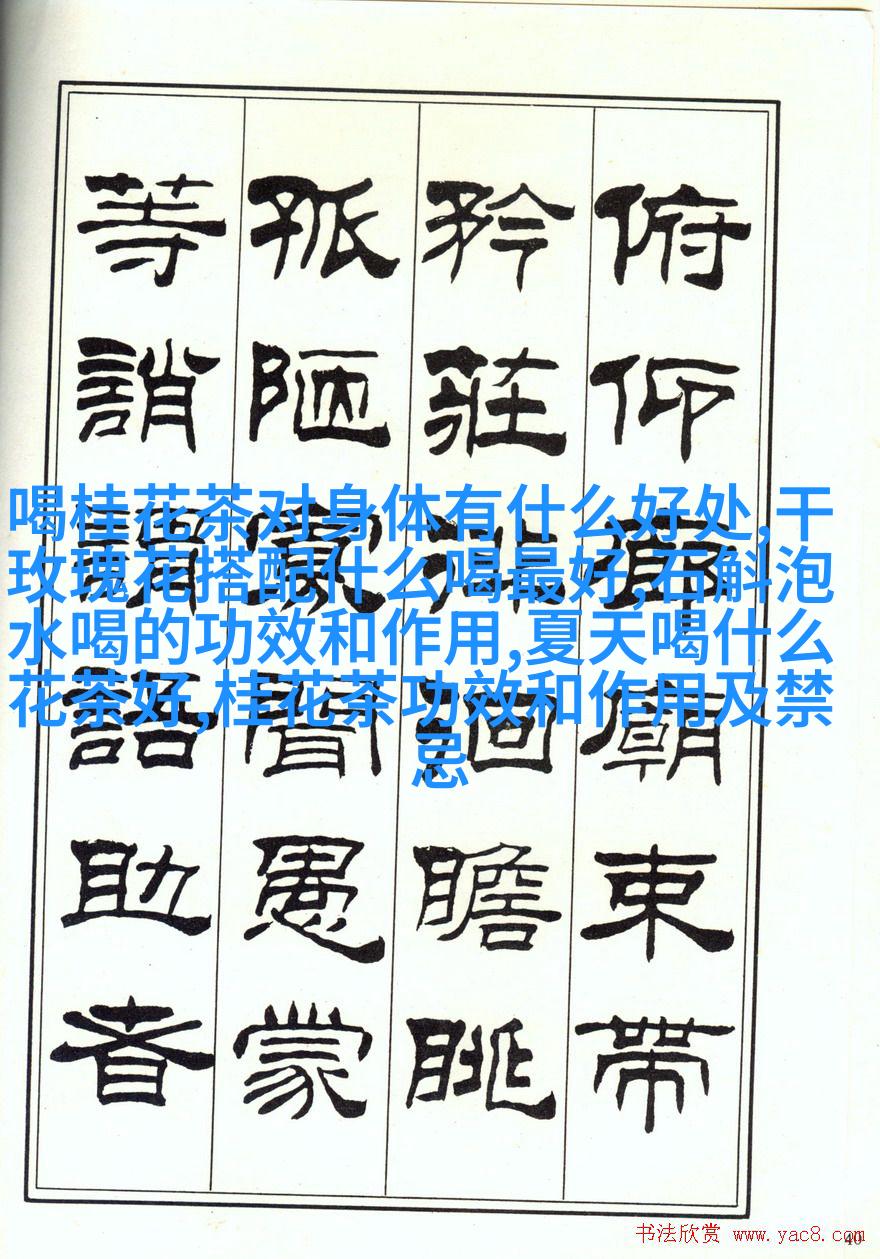 俯仰廊廟束帶
矜莊徘徊瞻眺
孤陋寡聞愚蒙
等誚謂語助者
喝桂花茶对身体有什么好处,干
玫瑰花搭配什么喝最好,石斛泡
水喝的功效和作用,夏天喝什么
花茶好,桂花茶功效和作用及禁
忌
书法欣赏 www.yac8.com
40